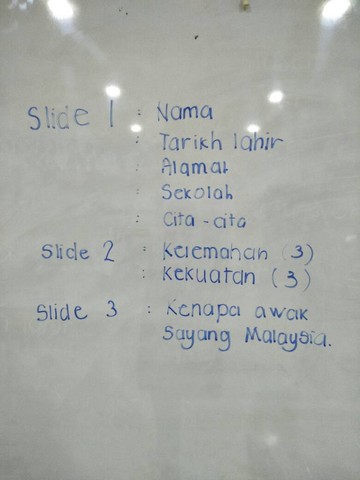 Slide 1 : Nama
: Tarikh lahir
: Alamat
: Sekolah
: Cita-cita
Slide 2 : Kelemahan (3)
: Kekuatan (3)
Slide 3 : Kenapa awak
Sayang Malaysia.